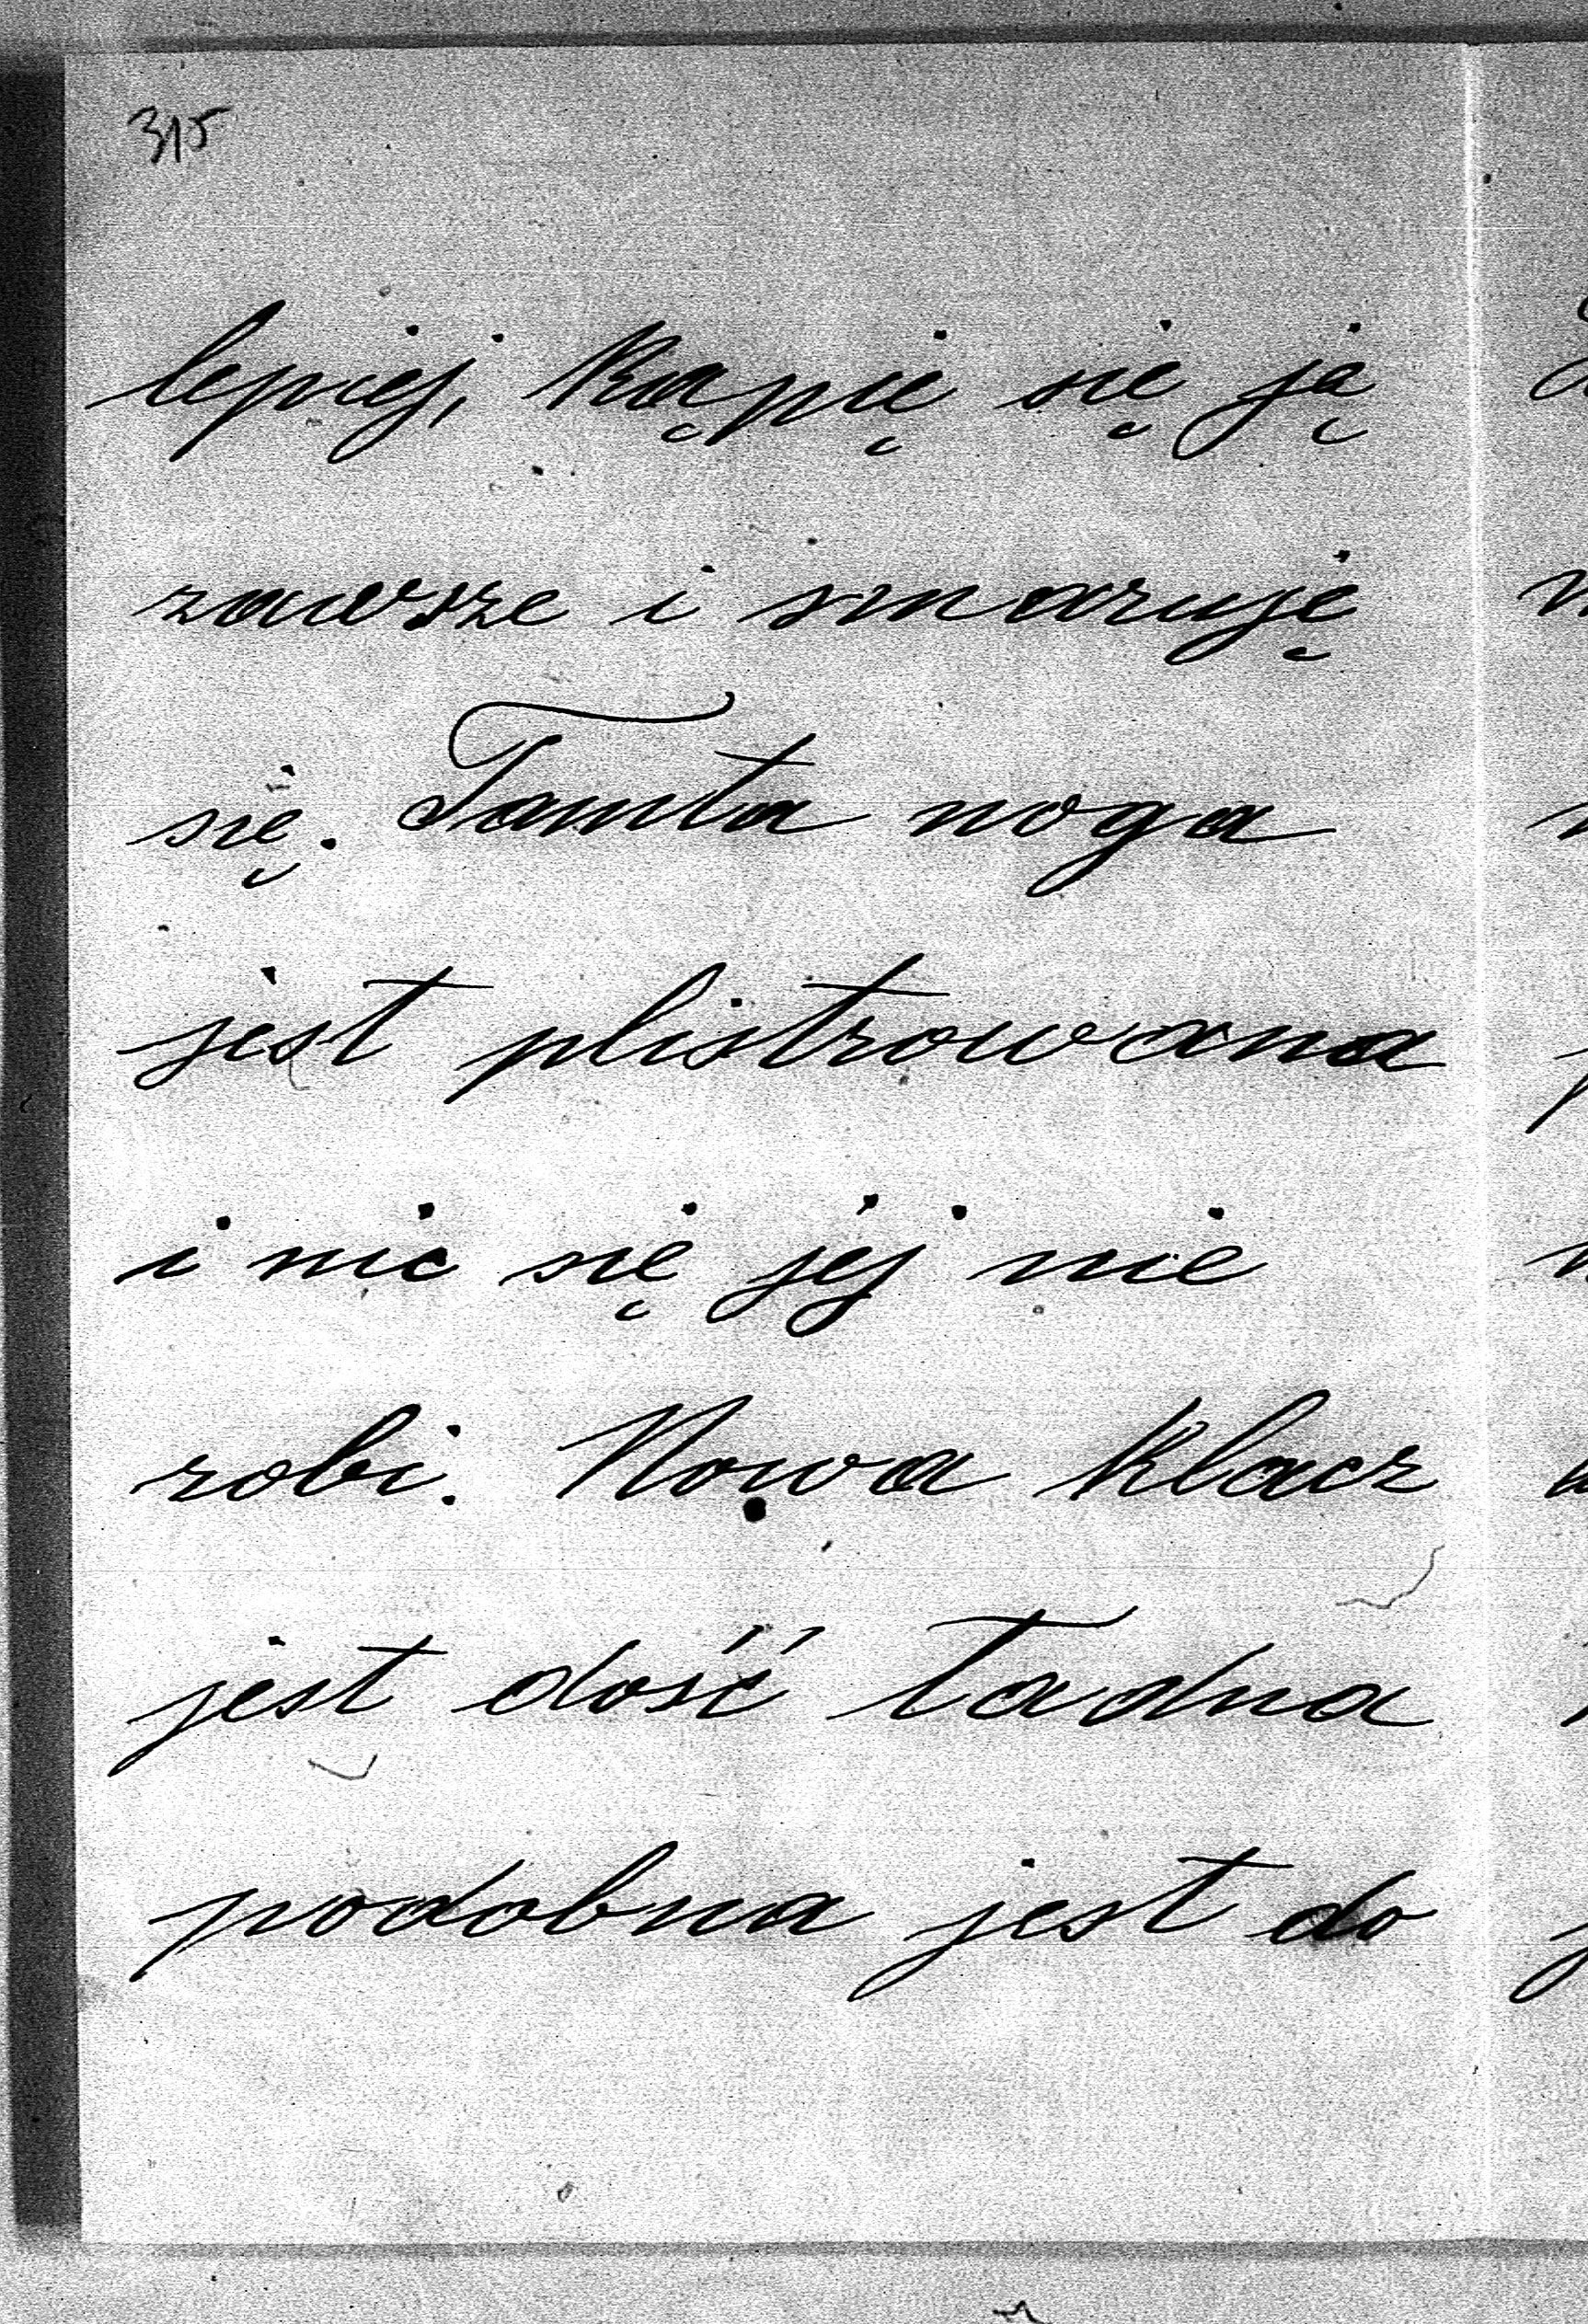 315
lepiej, kąpię się ją
zawsze i smaruję
się. Tamta noga
jest plistrowana
i nic się jej nie
robi. Nowa klacz
jest dość ładna
podobna jest do